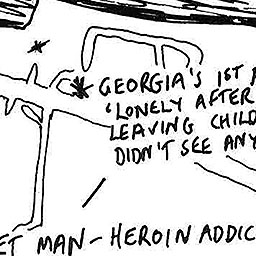 GEORGIA'S 1ST
'LONELY AFTER
LEAVING CHILD
DIDN'T SEE ANY
MAN - HEROIN ADDIC